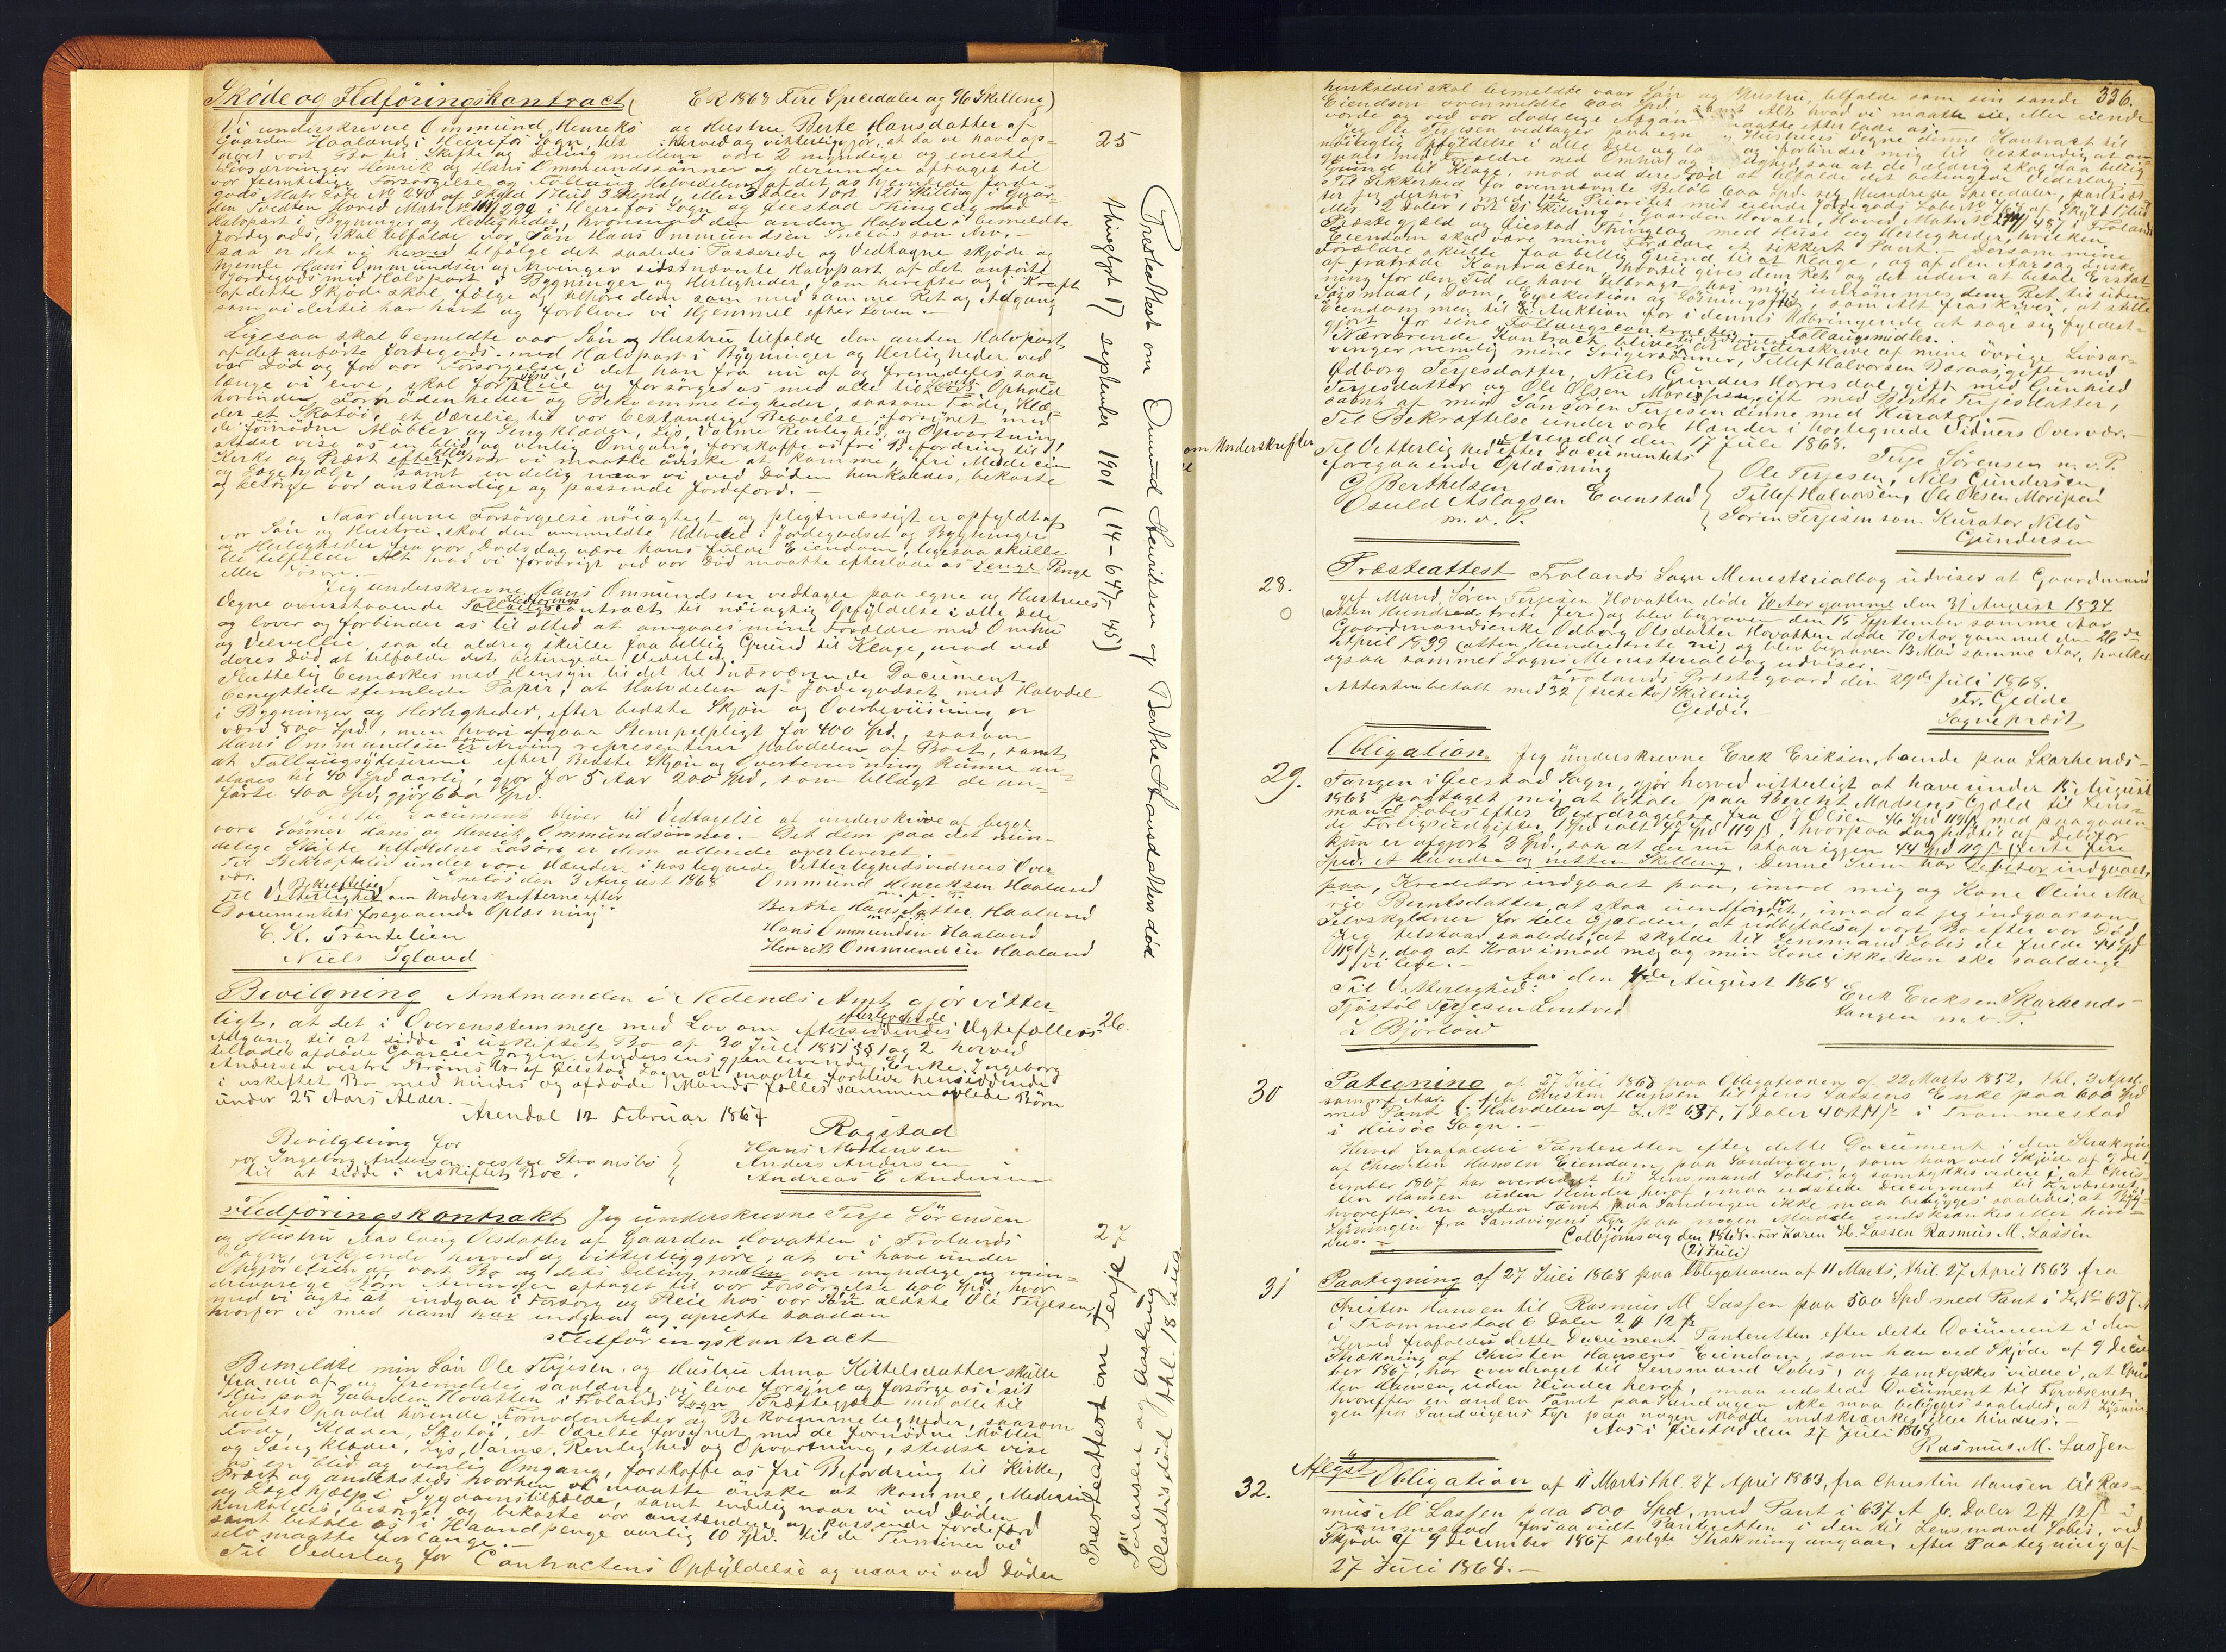 Skøde og Fledføringskontract (CR 1868 Fire Speciedaler og 96 Skilling)
25
Vi underskrevne Ommund Henriks og Hustru Berte Hansdatter af
Gaarden Haaland i Heirefos Sogn, herved og vitterliggjør, at da vi have op-
givet vort Bo til Skifte og Deling mellem vore 2 myndige og eneste
Livsarvinger Henrik og Hans Ommundssønner og derunder aftaget til
vor fremtidige Forsørgelse og Follaug Halvedelen af det os hjemlede Jorde-
gods Matr. Løbe No 240 af Skyld
den Tvedten Hoved Matr. No 111/299 i Heirefos Sogn og Øiestad Thinglag med
Halvpart i Bygninger og Herligheder, hvorimod den anden Halvdel i bemeldte
Jordegods, skal tilfalde vor Søn Hans Ommundsen Snelös som Arv. -
saa er det vi herved tilfølge det saaledes Passerede og Vedtagne skjøde og
hjemle Hans Ommundsen og Arvinger sidstnævnte Halvpart af det anførte
Jordegods med Halvpart i Bygninger og Herligheder, som herefter og i Kraft
af dette Skjøde skal følge og tilhøre dem som med samme Ret og Adgang
som vi dertil har havt og forbliver vi Hjemmel efter Loven. -
Ligesaa skal bemeldte vor Søn og Hustru tilfalde den anden Halvpart
af det anførte Jordegods med Halvpart i Bygninger og Herligheder ved
vor Død og for vor Forsørgelse i det han fra nu af og fremdeles saa
længe vi leve, skal forpleie og forsørge os med alle til Livets Ophold
hørende Fornødenheder og Bekvemmeligheder, saasom Føde, Klæ-
der et Skotøi, et Værelse til vor bestandige Beboelse, forsynet med
de fornødne Møbler og Sengklæder, Lys, Varme Renlighed og Opvartning,
stedse vise os en blid og venlig Omgang, forskaffe os fri Befordring til
Kirke og Præst eller hvor vi maatte ønske at komme, fri Medecin
og Lægehjælp samt endelig naar vi ved Døden henkaldes, bekoste
og besørge vor anstændige og passende Jordeferd. -
Naar denne Forsørgelse nøiagtegt og pligtmæssigt er opfyldt af
vor Søn og Hustru skal den ommeldte Halvdel i Jordegodset og Bygninger
og Herligheder fra vor Dødsdag være hans fulde Eiendom, ligesaa skulle
de tilfalde Alt hvad vi forøvrigt ved vor Død maatte efterlade os Penge
eller Løsøre. -
Jeg underskrevne Hans Ommundsen vedtager paa egne og Hustrues
Vegne ovenstaaende Follaugscontract Fledførings til nøiagtig Opfyldelse i alle Dele
og lover og forbinder os til altid at omgaaes mine Forældre med Omhu
og Velvillie, saa de aldrig skulle faa billig Grund til Klage, mod ved
deres Død at tilfalde det betingede Vederlag.
Sluttelig bemærkes med Hensyn til det til nærværende Document
benyttede stemplede Papir, at Halvdelen af Jordegodset med Halvdel
i Bygninger og Herligheder, efter bedste Skjøn og Overbevisning er
værd 800 Spd., men hvori afgaar Stempelpligt for 400 Spd., saasom
Hans Ommundsen som er Arving repræsenterer Halvdelen af Boet, samt
at Follaugsydelserne efter Bedste Skjøn og Overbevisning kunne an-
slaaes til 40 Spd aarlig, gjør for 5 Aar 200 Spd, som tillagt de an-
førte 400 Spd, gjør 600 Spd.
Dette Document bliver til Vedtagelse at underskrive af begge
vore Sønner Hans og Henrik Ommundsønner. - Det dem paa det min-
delige Skifte tilfaldne Løsøre er dem allerede overleveret. -
Til Bekræftelse under vore Hænder i hos tegnede Vitterlighedsvidners Over-
vær. Snelös den 3 August 1868
Ommund Henriksen Haaland
m. f. P.
Til Vitterlighed Bekræftelse om Underskrifterne efter
Documentets foregaaende Oplæsning
Berthe Hansdatter Haaland
m. f. P.
C. K. Trantelien
Hans Ommundsen Haaland
Niels Igland
Henrik Ommundsen Haaland
Bevilgning Amtmanden i Nedenes Amt gjør vitter-
26.
ligt, at det i Overensstemmelse med Lov om eftersiddendes efterlevende Ægtefællers
Adgang til at sidde i uskiftet Bo af 30 Juli 1851 §§ 1 og 2 herved
tillades afdøde Gaareier Jørgen Andersens gjenlevende Enke Ingeborg
Andersen vestre Strømsbo af Øiestad Sogn at maatte forblive hensiddende
i uskiftet Bo med hindes og afdøde Mands fælles sammen avlede Børn
under 25 Aars Alder.
Arendal 12 Februar 1867
Rogstad
Bevilgning for
for Ingeborg Andersen vestre Strømsbo
til at sidde i uskiftet Boe.
Hans Mortensen
Anders Andersen
Andreas E Andersen
Fledføringskontrakt Jeg underskrevne Terje Sørensen
27
og Hustru Aaslaug Olsdatter af Gaarden Hovatten i Frolands
Sogn erkjende herved og vitterliggjøre, at vi have under
Opgjørelsen af vort Bo og dets Deling mellem vore myndige og min-
dreaarige Børn Arvinger aftaget til vor Forsørgelse 600 Spd., hvor-
med vi agte at indgaa i Forsorg og Pleie hos vor Søn ældste Ole Terjesen,
hvorfor vi med ham har indgaa og oprette saadan
Fledføringskontract
Bemeldte min Søn Ole Terjesen og Hustru Anna Kittelsdatter skulle
fra nu af og fremdeles saalænge vi leve forsyne og forsørge os i sit
Hus paa Gaarden Hovatten i Frolands Sogn Præstegjæld med alle til
Livets Ophold hørende Fornødenheder og Bekvemmeligheder, saasom
Føde, Klæder, Skotøi, et Værelse forsynet med de fornødne Møbler
og Sengklæder, Lys, Varme, Renlighed og Opvartning, stedse vise
os en blid og venlig Omgang, forskaffe os fri Befordring til Kirke,
Præst og andetsteds hvorhen vi maatte ønske at komme, Medecin
og Lægehjælp i Sygdomstilfælde, samt endelig naar vi ved Døden
henkaldes, besørge og bekoste vor anstændige og passende Jordeferd
samt betale os i Haandpenge aarlig 10 Spd. til de Terminer vi
selv maatte forlange. -
Til Vederlag for Contractens Opfyldelse og naar vi ved Døden
Præsteattest om Ommund Henriksen og Berthe Hansdatters død
thinglyst 17 september 1901 (14-647-45)
Præsteattest om Terje
Sörensen og Aaslaug
Olsdatters död thl. 18 aug
336.
henkaldes skal bemeldte vaar Søn og Hustru, tilfalde som sin sande
Eiendom ovenmeldte 600 Spd. samt Alt hvad vi maatte eie, eller eiende
vorde og ved vor dødelege Afgan maatte efterlade os. -
Jeg Ole Terjesen vedtager paa egn Hustrues Vegne denne Kontract til
nøiagtig Opfyldelse i alle Dele og lo og forbinder mig til bestandig at om-
gaaes med Forældre med Omhu og saa at de aldrig skal faa billig
Grund til Klage, mod ved deres Død at tilfalde det betingede Vederlag. -
Til Sikkerhed for ovennævnte Beløb 600 Spd. sex Hundrede Speciedaler, pantsæt-
ter jeg derhos med 1ste Prioritet mit eiende Jordegods
Præstegjæld og Øiestad Thinglag med Huse og Herligheder, hvilken
Eiendom skal være mine Forældre et sikkert Pant. - Dersom mine
Forældre skulle faa billig Grund til at klage, og af den Aarsag ønske
af fratræde Kontracten, hvortil gives dem Ret og det uden at betale Erstat-
ning for den Tid de have tilbragt hos mig, indrømmes dem Ret til uden
Søgsmaal, Dom, Exekution og Løsningsret, som Alt fraskrives, at stille
Eiendommen til Auktion for i dennes Udbringende at søge sig fyldest-
gjort for sine Follaugscontracten Follaugsmidler.
Nærværende Kontract bliver til Vedtagelse at underskrive af mine øvrige Livsar-
vinger nemlig mine Svigersønner, Tellef Halvorsen Boraas gift med
Ødborg Terjesdatter, Niels Gunders Norresdal, gift med Gunhild
Terjesdatter og Ole Olsen Moripen, gift med Berthe Terjesdatter,
samt af min Søn Søren Terjesen denne med Kurator. -
Til Bekræftelse under vore Hænder i hostegnede Vidners Overvær. -
Arendal den 17 Juli 1868.
om Underskrifter
Til Vitterlig hed efter Documentets
foregaaende Oplæsning
Terje Sörensen m. v. P.
G Berthelsen
Ole Terjesen, Niels Gundersen,
Osuld Aslagsen Evenstad
Tellef Halvorsen, Ole Olsen Moripen
m. v. P.
Sören Terjesen som Kurator Niels
Gundersen
28.
Præsteattest Frolands Sogn Menesterialbog udviser at Gaardmand
gift Mand Søren Terjesen Hovatten døde 70 Aar gamme den 31 August 1834
(atten Hundrede trete fire) og blev begraven den 15 September samme Aar
Gaardmandsenke Odborg Olsdatter Hovatten døde 70 Aar gammel den 26de
April 1839 (atten Hundredtrete ni) og blev begraven 13 Mai samme Aar, hvilket
ogsaa sammes Sogns Menesterialbog udviser. -
Frolands Præstegaard den 29de Juli 1868.
Attesten betalt med 32 (trete to) Skilling
Gedde.
Fr. Gedde
Sognepræst
29.
Obligation. Jeg underskrevne Erek Eriksen, boende paa Skarhends-
Tangen i Øiestad Sogn, gjør herved vitterligt at have under 15 August
1863 paataget mig at betale paa Berent Madsens Gjæld til Lens-
mand Lobes efter Overdragelse fra O G Olsen 46 Spd 119 ß med paagaaen-
de Forligsudgifter 1 Spd ialt 47 Spd 119 ß, hvorpaa dog hidtil af debitor
kun er afgjort 3 Spd., saa at der nu staar igjen 44 Spd 119 ß firti fire
Sped. et Hundre og nitten Skilling. Denne Sum har Debitor indgaaet
paa, Kreditor indgaaet paa, imod mig og Kone Oline Ma-
rie Berntsdatter, at staa uindfordret, imod at jeg indgaar som
Selvskyldner for Hele Gjælden, at udbetales af vort Bo efter vor Død
Jeg tilstaar saaledes at skylde til Lensmand Lobes de fulde 44 Spd
119 ß, dog at Krav imod mig og min Kone ikke kan ske saalænge
vi leve. -
Aas den 4de August 1868
Til Vitterlighed:
Erek Ereksen Skarhends-
Tjöstöl Terjesen Lentved
tangen m. v. P.
L Björlow
30
Pategning af 27 Juli 1868 paa Obligationen af 22 Marts 1852, thl. 3 April
samme Aar. fra Christen Hansen til Jens Lassens Enke paa 600 Spd
med Pant i Halvdelen af L. No 637, 7 Daler 4 Ort 14 ß i Trommestad
i Hiisöe Sogn. -
Herved frafaldes Panteretten efter dette Document i den Strækning
af Christen Hansens Eiendom paa Sandvigen, som han ved Skjøde af 9 De-
cember 1867 har overdraget til Lensmand Lobes, og samtykkes videre i, at Chris-
ten Hansen uden Hinder heraf, maa udstede Document til Fyrvæsenet,
hvorefter en anden Tomt paa Sandvigen ikke maa bebygges saaledes, at
Lysningen fra Sandvigens Fyr paa nogen Maade indskrænkes eller hin-
dres. -
Colbjørnsvig den 1868. - for Karen H. Lassen Rasmus M. Lassen
(27 Juli)
31
Paategning af 27 Juli 1868 paa Obligationen af 11 Marts, thl. 27 April 1863 fra
Christen Hansen til Rasmus M Lassen paa 500 Spd med Pant i L. No 637 A
i Trommestad 6 Daler 2 # 12 ß
Herved frafaldes dette Document Panteretten efter dette Document i den
Strækning af Christen Hansens Eiendom, som han ved Skjøde af 9 Decem-
ber 1867, har overdraget til Lensmand Lobes, og samtykkes videre i, at Chris-
ten Hansen, uden Hinder heraf, maa udstede Document til Fyrvæsenet,
hvorefter en anden Tomt paa Sandvigen ikke maa bebygges saaledes, at Lysnin-
gen fra Sandvigens Fyr paa nogen Maade indskrænkes eller hindres. -
Aas i Øiestad den 27 Juli 1868
Rasmus M. Lassen
32.
Aflyst Obligation af 11 Marts thl. 27 April 1863, fra Christen Hansen til Ras-
mus M Lassen paa 500 Spd, med Pant i 637 A 6. Daler 2 # 12 ß i
Trommestad forsaavidt Panteretten i den til Lensmand Lobes, ved
Skjøde af 9 December 1867 solgte Strækning angaar, efter Paategning af
27 Juli 1868. -